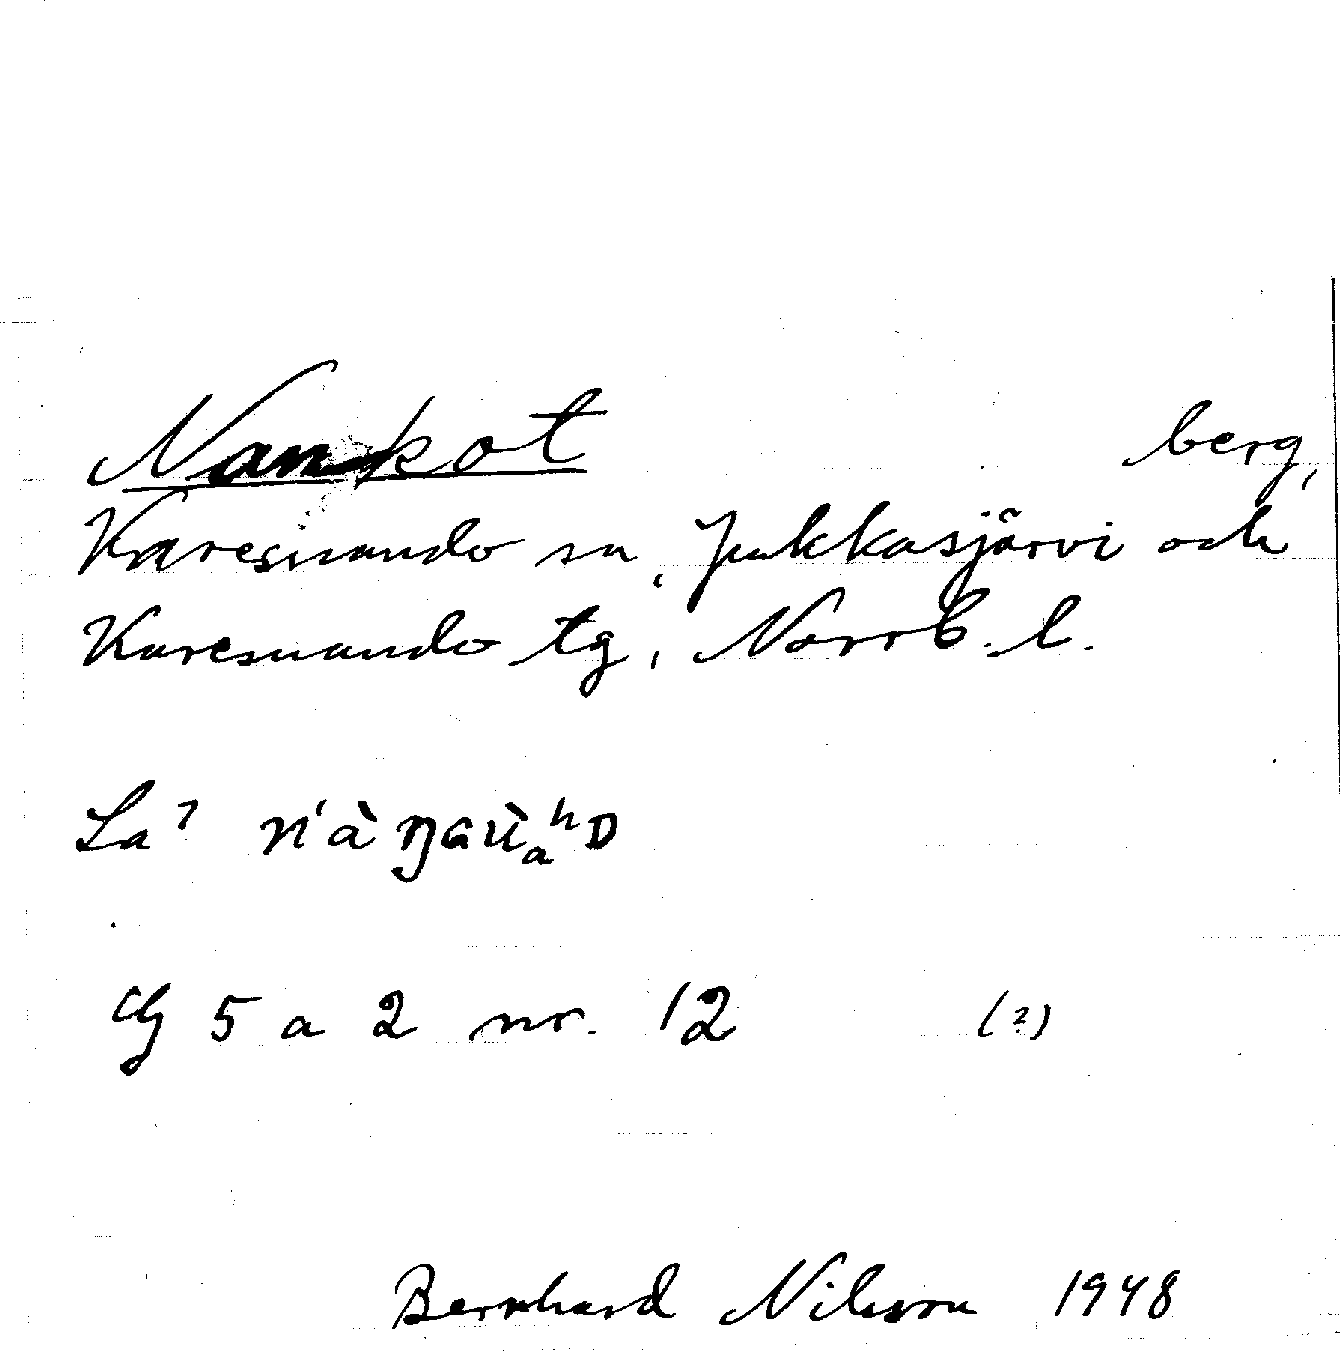 Nankot berg,
Karesuando sn, Jukkasjärvi och
Karesuando tg, Norrb. l.
La
Cg 5 a 2 nr. 12 (2)
Bernhard Nilsson 1948